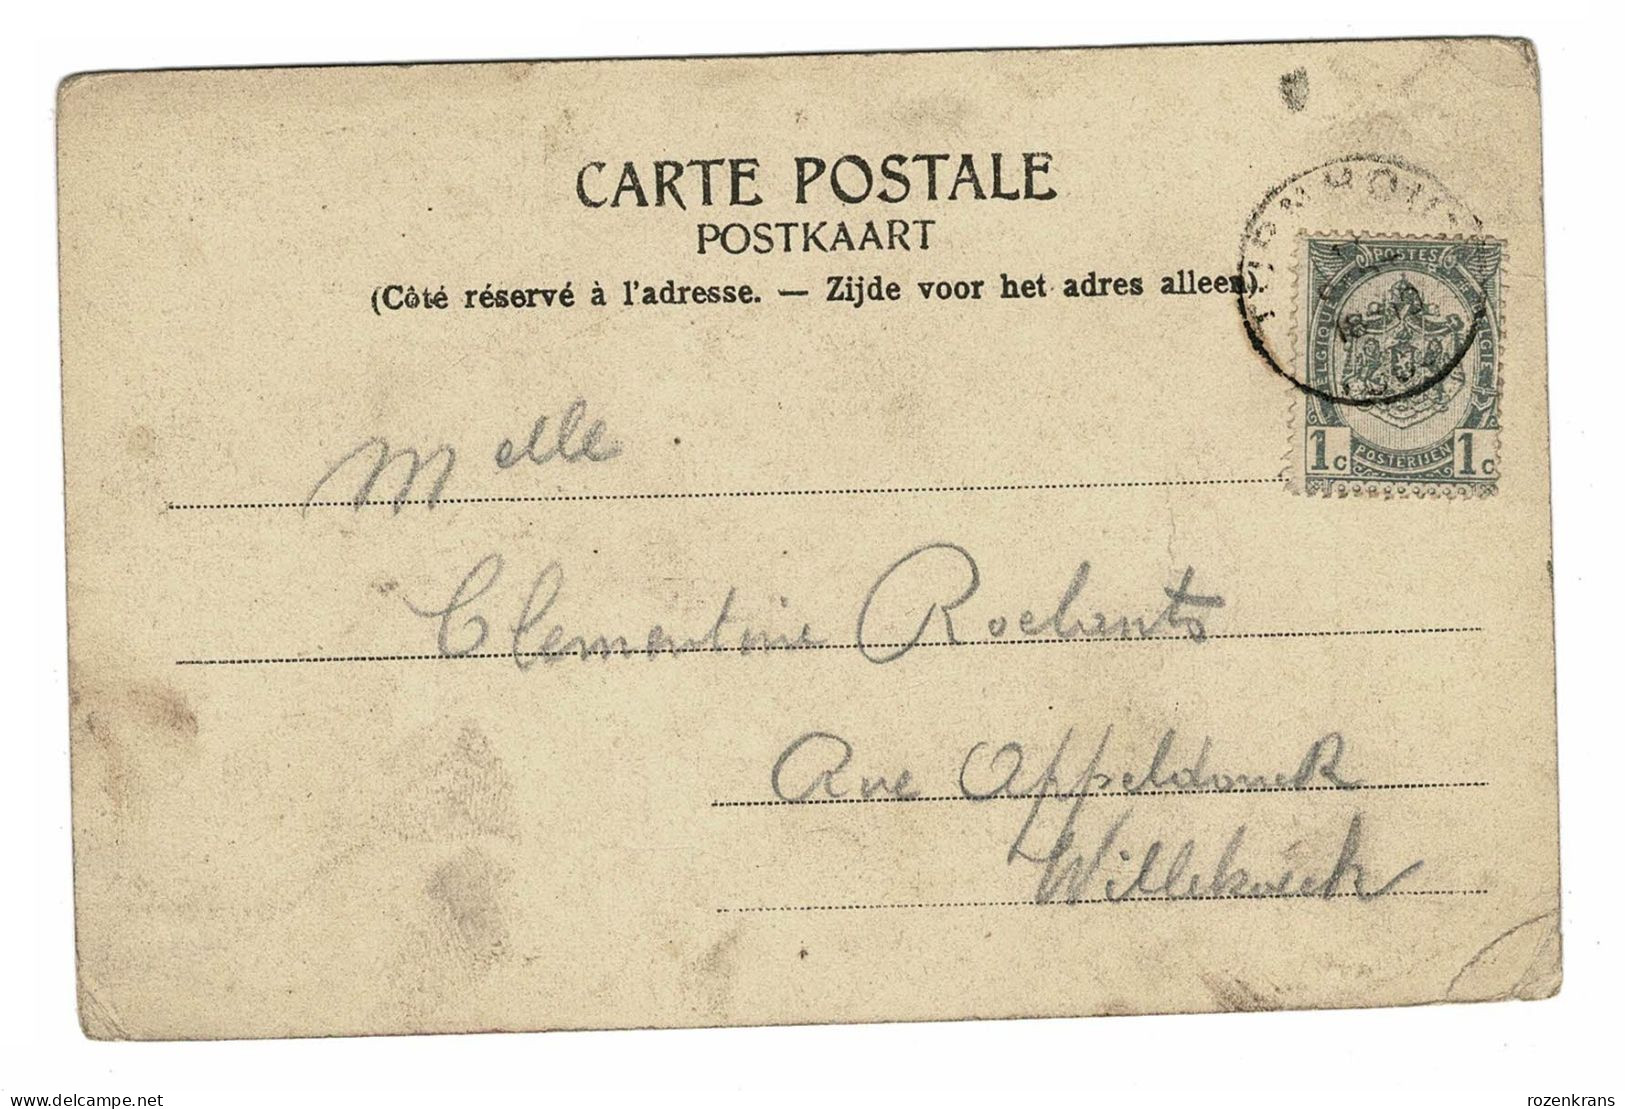 CARTE POSTALE
POSTKAART
(Côté réservé à l'adresse. — Zijde voor het adres alleen).
TURNHOUT
POSTES
BELGIQUE BELGIE
1c POSTERIJEN 1c
Melle
Clementine Roelants
Rue Appeldonck
Willebroeck
delcampe.net
rozenkrans